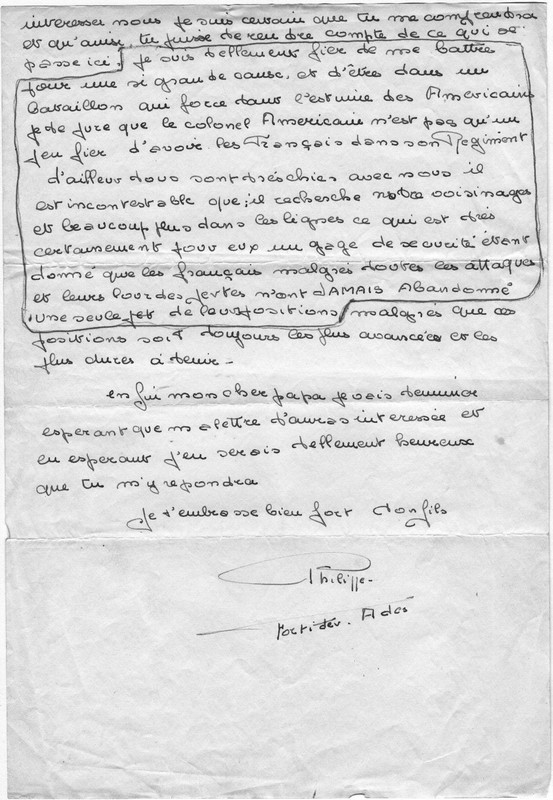 interesser nous je suis certain que tu me comprendra
et qu'ainsi, tu puisse de rendre compte de ce qui se
passe ici, je suis tellement fier de me battre
pour une si grande cause, et d'êtres dans un
Bataillon qui force dans l'estime des Américains
je te jure que le colonel Américain n'est pas qu'un
peu fier d'avoir les Français dans son Regiment
d'ailleur tous sont trés chics avec nous il
est incontestable que; il recherche notre voisinages
et beaucoup plus dans les lignes ce qui est trés
certainement pour eux un gage de securité étant
donné que les français malgrés toutes les attaques
et leurs lourdes pertes n'ont JAMAIS Abandonné
une seule de leur positions malgrés que ces
positions soit toujours les plus avancées et les
plus dures à tenir -
enfin mon cher papa je vais terminer
esperant que ma lettre t'auras interessée et
en esperant j'en serais tellement heureux
que tu m'y repondra
Je t'embrasse bien fort ton fils
Philippe -
Ades